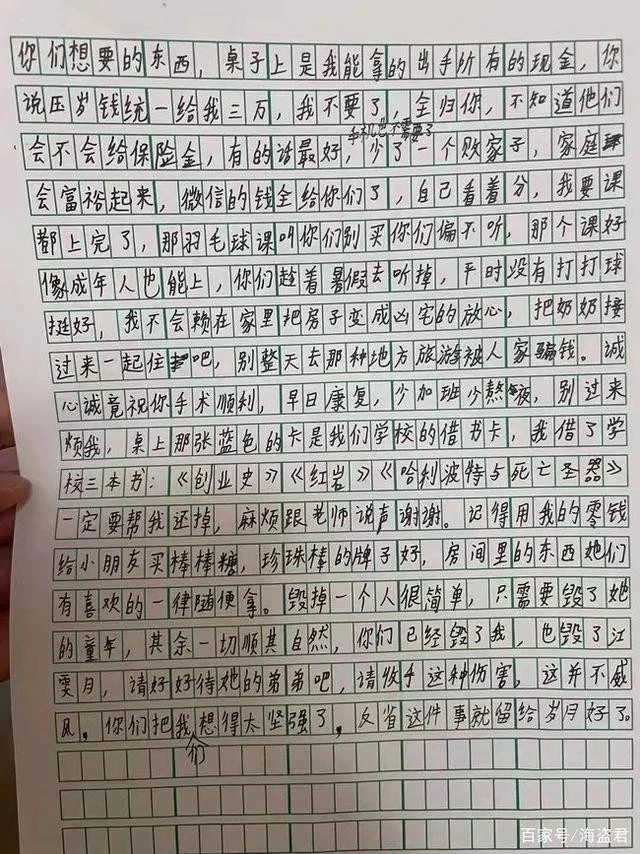 你们想要的东西，桌子上是我能拿的出手所有的现金，你
说压岁钱统一给我三万，我不要了，全归你，不知道他们
手机也不需要了
会不会给保险金，有的话最好，少了一个败家子，家庭
会富裕起来，微信的钱全给你们了，自己看着分，我要课
都上完了，那羽毛球课叫你们别买你们偏不听，那个课好
像成年人也能上，你们趁着暑假去听掉，平时没有打打球
挺好，我不会赖在家里把房子变成凶宅的放心，把奶奶接
过来一起住吧，别整天去那种地方旅游被人家骗钱。诚
心诚竟祝你手术顺利，早日康复，少加班少熬夜，别过来
烦我，桌上那张蓝色的卡是我们学校的借书卡，我借了学
校三本书：《创业史》《红岩》《哈利波特与死亡圣器》
一定要帮我还掉，麻烦跟老师说声谢谢。记得用我的零钱
给小朋友买棒棒糖，珍珠棒的牌子好，房间里的东西她们
有喜欢的一律随便拿。毁掉一个人很简单，只需要毁了她
的童年，其余一切顺其自然，你们已经毁了我，也毁了江
雯月，请好好待她的弟弟吧，请收手这种伤害，这并不威
风，你们把我们想得太坚强了，反省这件事就留给岁月好了。
百家号/海盗君